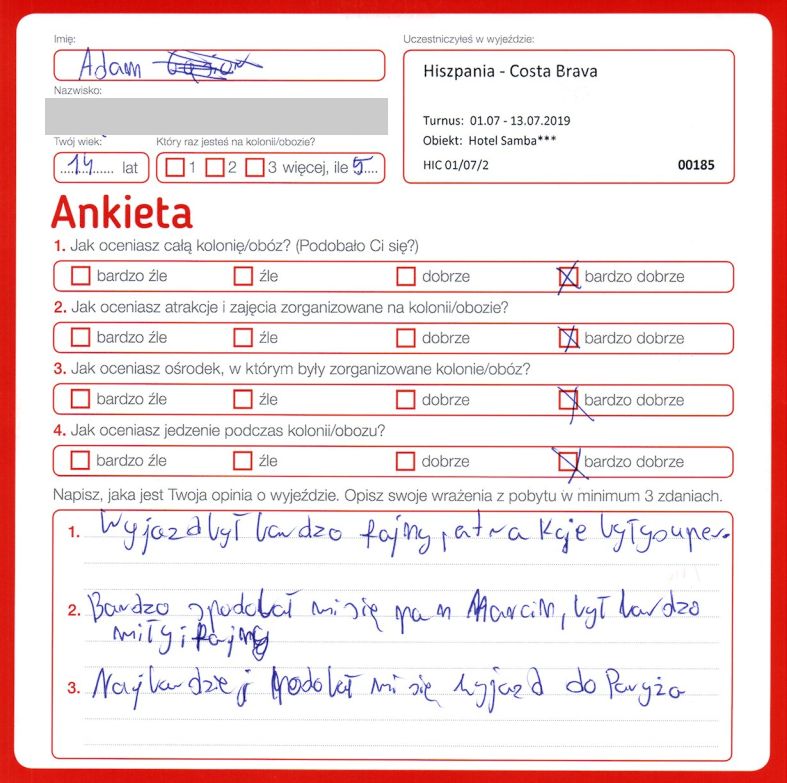 Imię:
Uczestniczyłeś w wyjeździe:
Adam
Hiszpania - Costa Brava
Nazwisko:
Turnus: 01.07 - 13.07.2019
Obiekt: Hotel Samba***
HIC 01/07/2
00185
Twój wiek:
Który raz jesteś na kolonii/obozie?
14 lat
1 2 3 więcej, ile 5
Ankieta
1. Jak oceniasz całą kolonię/obóz? (Podobało Ci się?)
bardzo źle źle dobrze bardzo dobrze
2. Jak oceniasz atrakcje i zajęcia zorganizowane na kolonii/obozie?
bardzo źle źle dobrze bardzo dobrze
3. Jak oceniasz ośrodek, w którym były zorganizowane kolonie/obóz?
bardzo źle źle dobrze bardzo dobrze
4. Jak oceniasz jedzenie podczas kolonii/obozu?
bardzo źle źle dobrze bardzo dobrze
Napisz, jaka jest Twoja opinia o wyjeździe. Opisz swoje wrażenia z pobytu w minimum 3 zdaniach.
1. Wyjazd był bardzo fajny, atrakcje były super.
2. Bardzo spodobał mi się pan Marcin, był bardzo
miły i fajny
3. Najbardziej podobał mi się wyjazd do Paryża